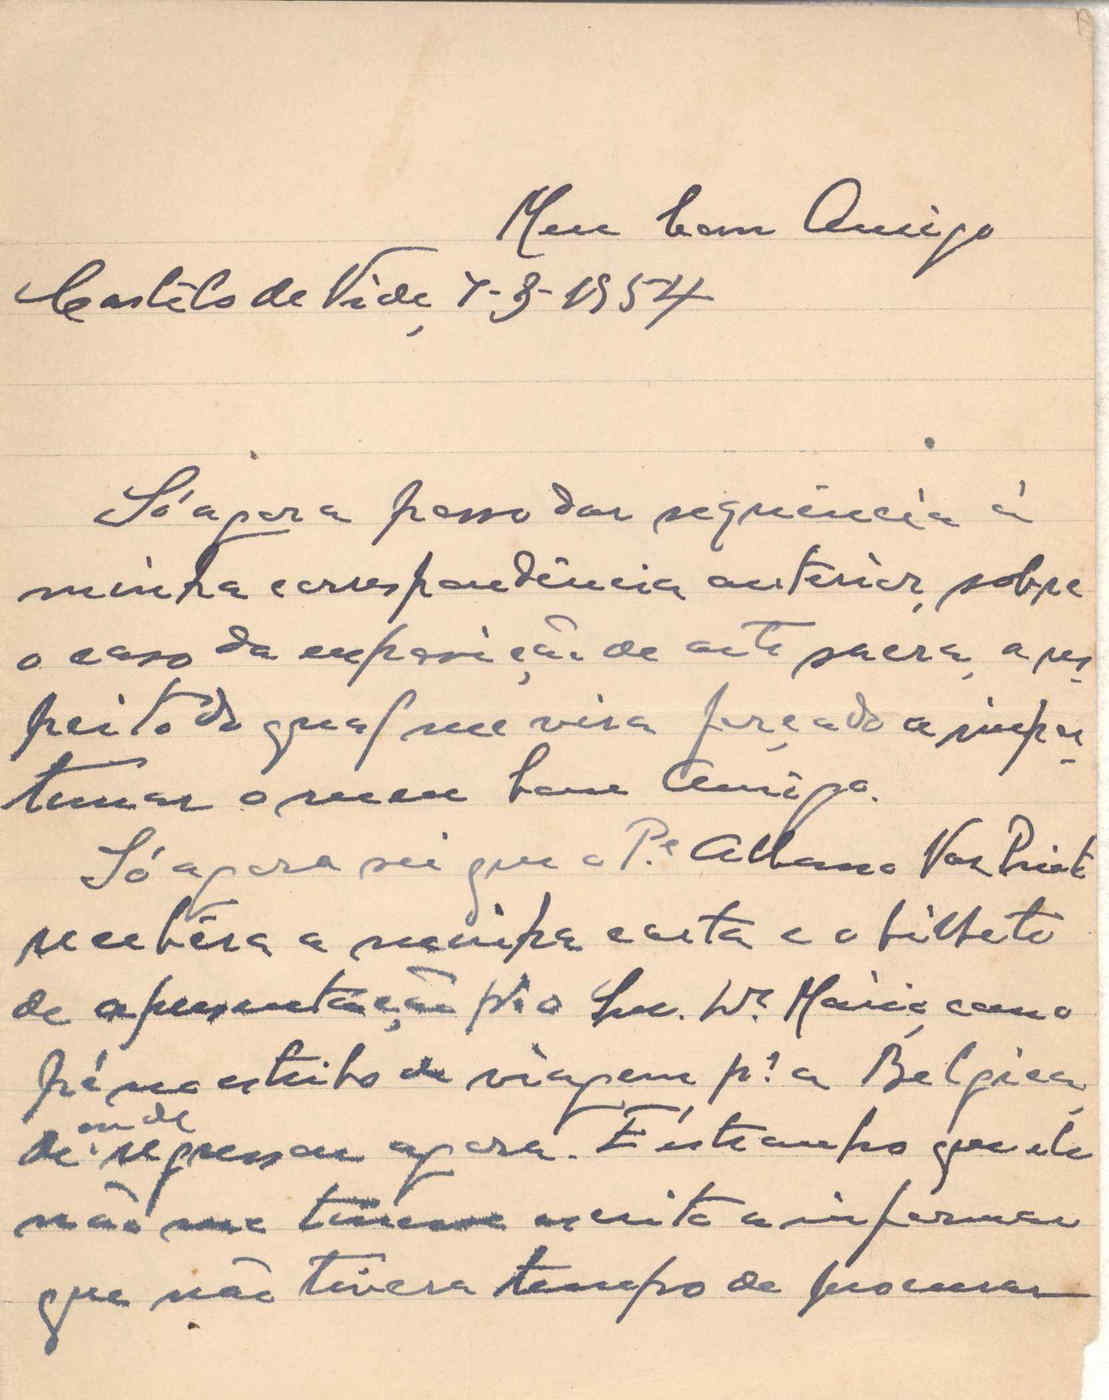 Meu bom Amigo
Castêlo de Vide, 7-3-1954
Só agora posso dar sequência á
minha correspondência anterior, sobre
o caso da exposição de arte sacra, a res-
peito do qual me vira forçado a impor-
tunar o meu bom Amigo.
Só agora sei que o P.e Albano Vaz Pinto
recebêra a minha carta e o bilhete
de apresentação p.ª o Snr. Dr. Mário, como
pé no estribo de viagem p.ª a Bélgica,
de onde regressou agora. Estranho que ele
não me tivesse escrito a informar
que não tivera tempo de procurar